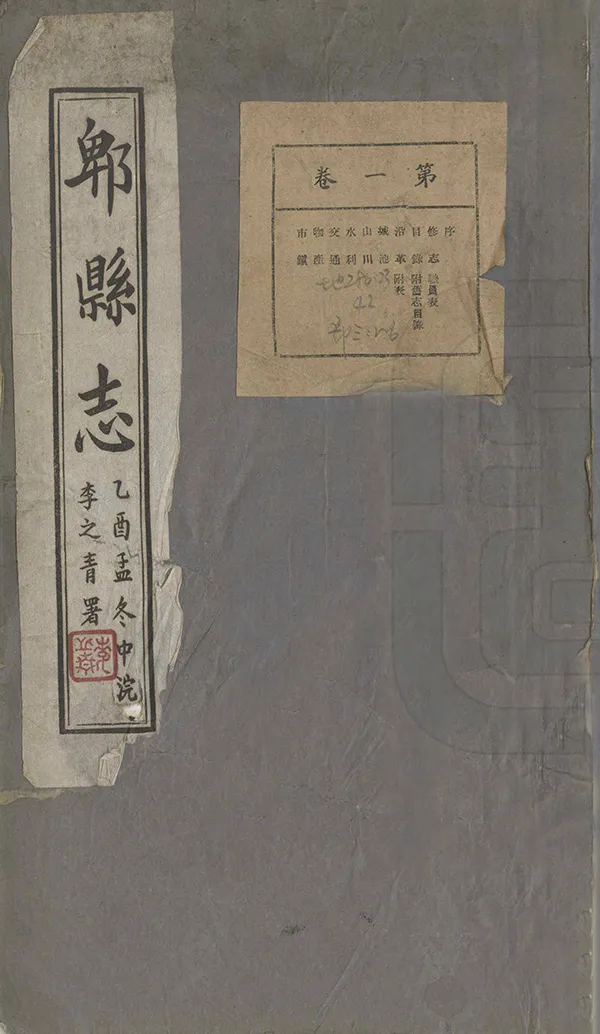 郫縣志
乙酉孟冬中浣
李之青署
第一卷
序
修志職員表
目錄附舊志目錄
沿革附表
城池
山川
水利
交通
物產
市鎮
42